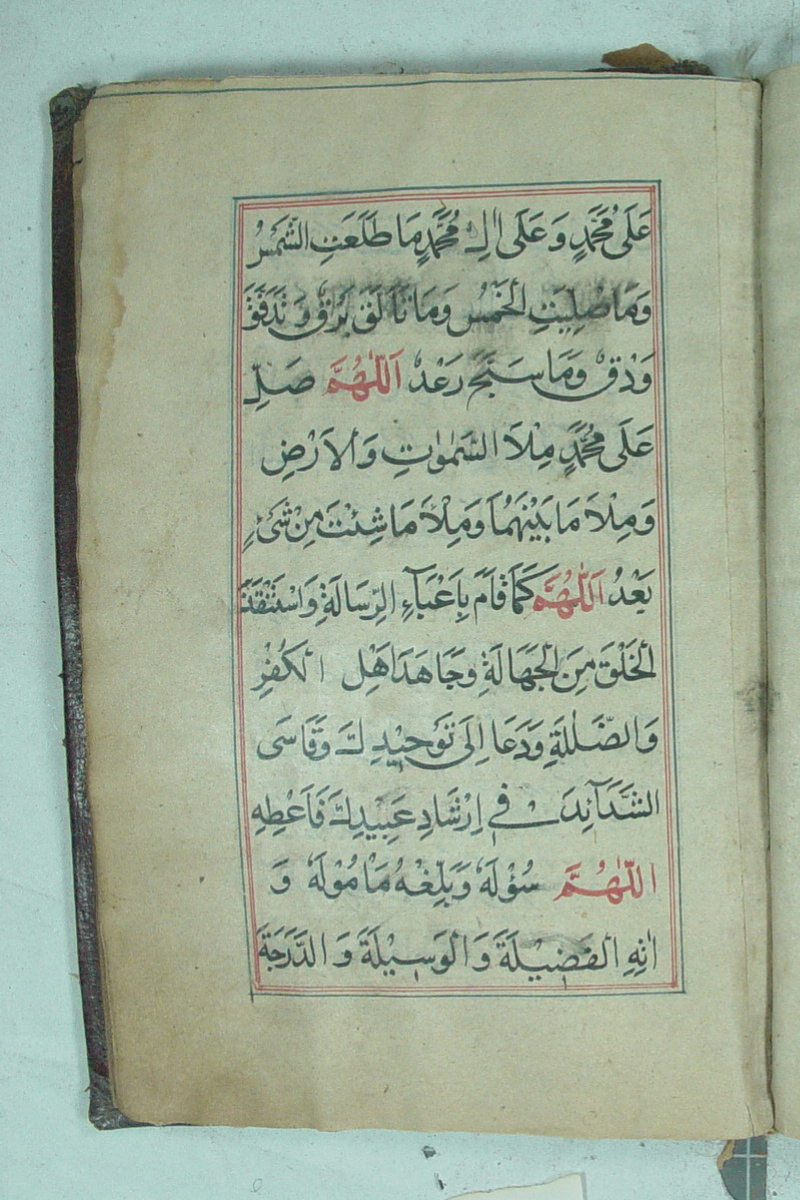 عَلَى مُحَمَّدٍ وَعَلَى اٰلِ مُحَمَّدٍ مَا طَلَعَتِ الشَّمْسُ
وَمَا صُلِّيَتِ الْخَمْسُ وَمَا تَاَلَّقَ بَرْقٌ وَتَدَفَّقَ
وَدْقٌ وَمَا سَبَّحَ رَعْدٌ اَللّٰهُمَّ صَلِّ
عَلَى مُحَمَّدٍ مِلْاَ السَّمٰوٰتِ وَالْاَرْضِ
وَمِلْاَ مَا بَيْنَهُمَا وَمِلْاَ مَا شِئْتَ مِنْ شَئٍ
بَعْدُ اَللّٰهُمَّ كَمَا قَامَ بِاَعْبَآءِ الرِّسَالَةِ وَاسْتَنْقَذَ
الْخَلْقَ مِنَ الْجَهَالَةِ وَجَاهَدَ اَهْلِ الْكُفْرِ
وَالضَّلٰلَةِ وَدَعَا اِلَى تَوْحِيْدِكَ وَقَاسَى
الشَّدَآئِدَ فِي اِرْشَادِ عَبِيْدِكَ فَاَعْطِهِ
اللّٰهُمَّ سُؤْلَهُ وَبَلِّغْهُ مَاْمُوْلَهُ وَ
اٰتِهِ الْفَضِيْلَةَ وَالْوَسِيْلَةَ وَالدَّرَجَةَ